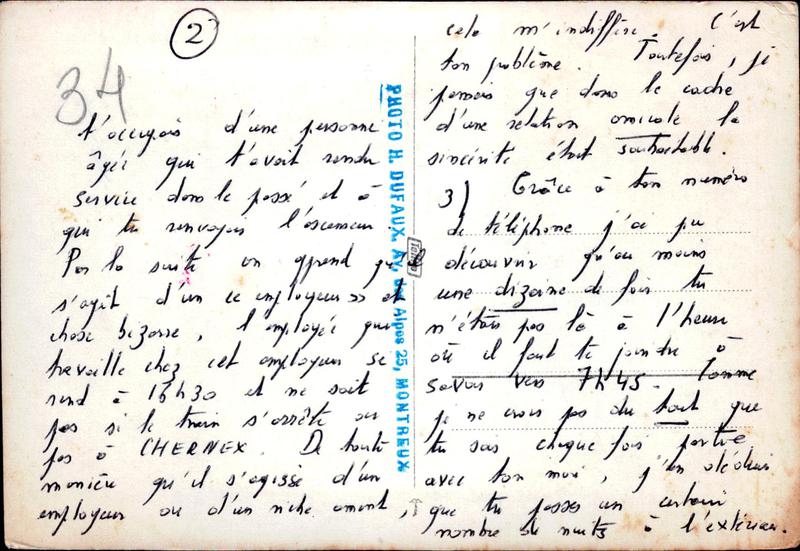 2
34
t'occupais d'une personne
âgée qui t'avait rendu
service dans le passé et à
qui tu renvoyais l'ascenseur.
Par la suite on apprend qu'il
s'agit d'un « employeur » et
chose bizarre, l'employée qui
travaille chez cet employeur se
rend à 16h30 et ne sait
pas si le train s'arrête ou
pas à CHERNEX. De toute
manière qu'il s'agisse d'un
employeur ou d'un riche amant,
PHOTO H. DUFAUX, Av. des Alpes 25, MONTREUX
cela m'indiffère. C'est
ton problème. Toutefois, je
pensais que dans le cadre
d'une relation amicale la
sincérité était souhaitable.
3) Grâce à ton numéro
de téléphone j'ai pu
découvrir qu'au moins
une dizaine de fois tu
n'étais pas là à l'heure
où il faut te joindre à
savoir vers 7h45. Comme
je ne crois pas du tout que
tu sois chaque fois partie
avec ton mari, j'en déduis
que tu passes un certain
nombre de nuits à l'extérieur.